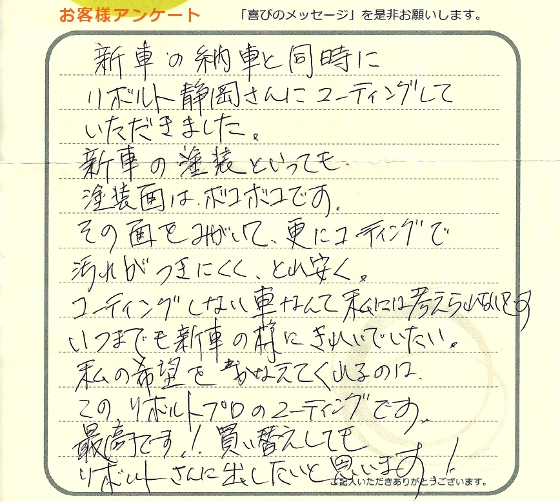 お客様アンケート 「喜びのメッセージ」を是非お願いします。
新車の納車と同時に
リボルト静岡さんにコーティングして
いただきました。
新車の塗装といっても
塗装面は、ボコボコです。
その面をみがいて、更にコーティングで
汚れがつきにくく、とれ安く。
コーティングしない車なんて私には考えられないです
いつまでも新車の様にきれいでいたい。
私の希望をかなえてくれるのは、
この、リボルトプロのコーティングです。
最高です!! 買い替えしても
リボルトさんに出したいと思います!
ご記入いただきありがとうございます。